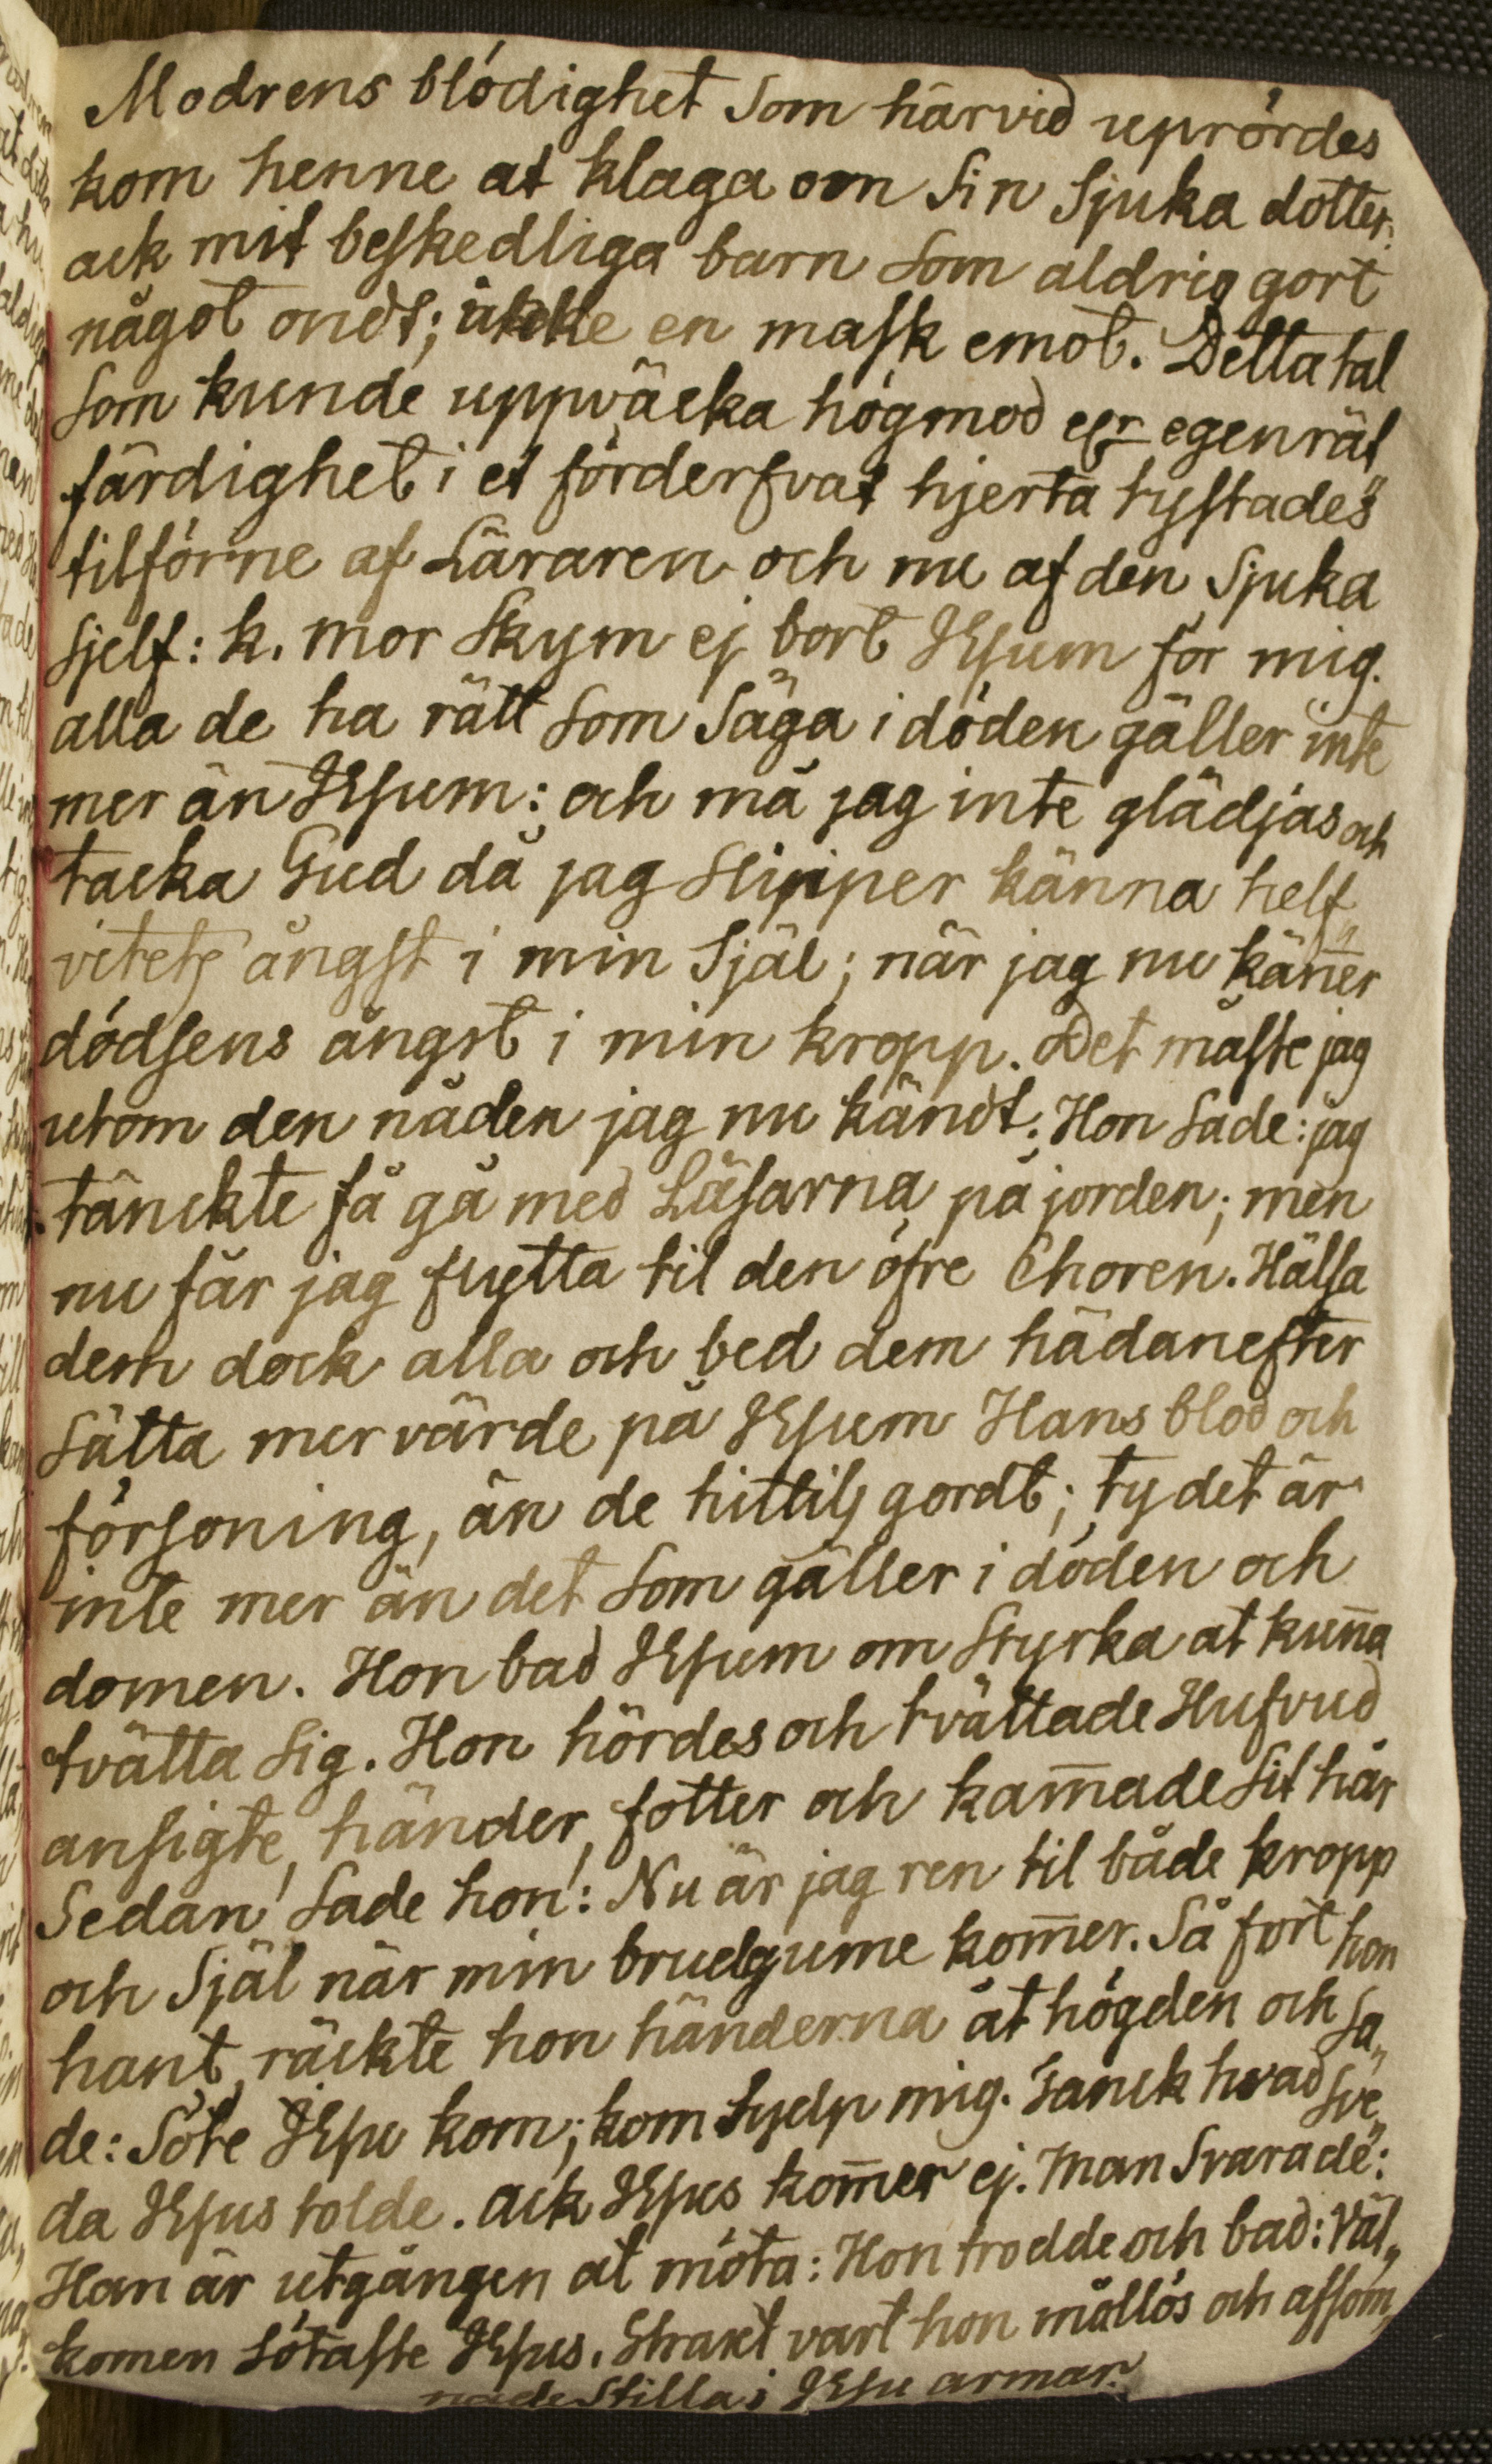 Modrens blödighet Som härvid uprördes
kom henne at klaga om Sin Sjuka dotter:
ack mit beskedliga barn Som aldrig gort
något ondt; icke en mask emot. Detta tal
Som kunde uppväcka högmod egenrät„
färdighet i et förderfvat hjerta tystades
tilförne af Läraren och nu af den Sjuka
Sjelf: k. mor Skym ej bort JEsum för mig.
alla de ha rätt Som Säga i döden gäller inte
mer än JEsum: och må jag inte glädjas och
tacka Gud då jag Slipper känna helf„
vitets ångst i min Själ; när jag nu kän̄er
dödsens ångst i min kropp. Det måste jag
utom den nåden jag nu kändt. Hon Sade: jag
tänckte få gå med Läsarna på jorden; men
nu får jag flytta til den öfre Choren. Hälsa
dem dock alla och bed dem hädanefter
Sätta mer värde på JEsum Hans blod och
försoning, än de hittils gordt; ty det är
inte mer än det Som gäller i döden och
domen. Hon bad JEsum om Styrka at kun̄a
tvätta Sig. Hon hördes och tvättade Hufvud
ansigte, händer, fötter och kam̄ade Sit hår
Sedan Sade hon: Nu är jag ren til både kropp
och Själ när min brudgume kom̄er. Så fort hon
hant, räckte hon händerna åt högden och Sa„
de: Söte JEsu kom; kom hjelp mig. Tanck hvad Sve„
da JEsus tolde. ack JEsus kom̄er ej. Man Svarade:
Han är utgången at möta: Hon trodde och bad: Väl„
komen Sötaste JEsus. Straxt vart hon mållös och afsom„
nade Stilla i JEsu armar.